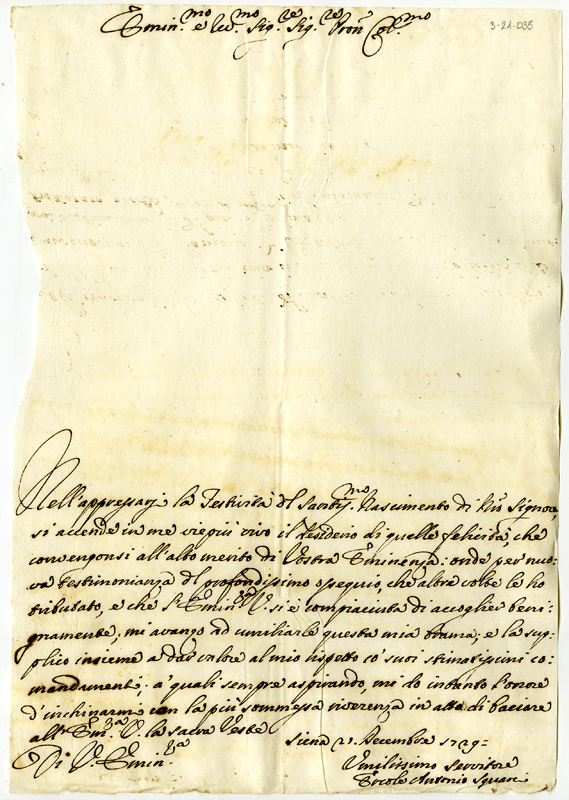 3-21-035
Emin.mo e Rev.mo Sig.re Sig.re Pron Col.mo
Nell'appressarsi la Festività del Santis.mo Nascimento di Nro Signore,
si accende in me viepiù vivo il desiderio di quelle felicità, che
convengonsi all'alto merito di Vostra Eminenza: onde per nuo-
va testimonianza del profondissimo ossequio, che altre volte le ho
tributato, e che l'Emin.za V. si è compiaciuta di accoglier beni-
gnamente; mi avanzo ad umiliarle questa mia brama; e la sup-
plico insieme a dar valore al mio rispetto co' suoi stimatissimi co-
mandamenti; a' quali sempre aspirando, mi do intanto l'onore
d'inchinarmi con la più sommessa riverenza in atto di baciare
all'Em.za V. la sacra Veste
Di V. Emin.za
Siena 21. Decembre 1729=
Umilissimo Servitore
Ercole Antonio